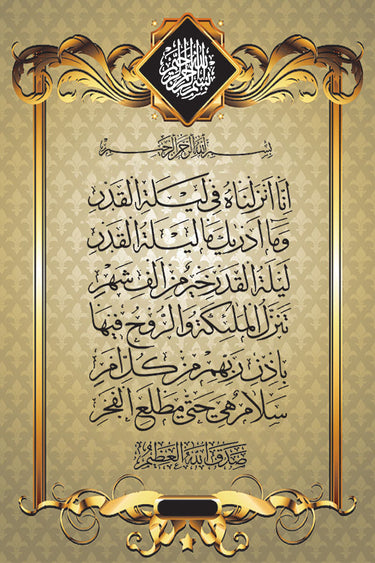 بسم الله الرحمن الرحيم
بسم الله الرحمن الرحيم
انا انزلناه في ليلة القدر
وما ادريك ما ليلة القدر
ليلة القدر خير من الف شهر
تنزل الملئكة والروح فيها
باذن ربهم من كل امر
سلام هي حتى مطلع الفجر
صدق الله العظيم